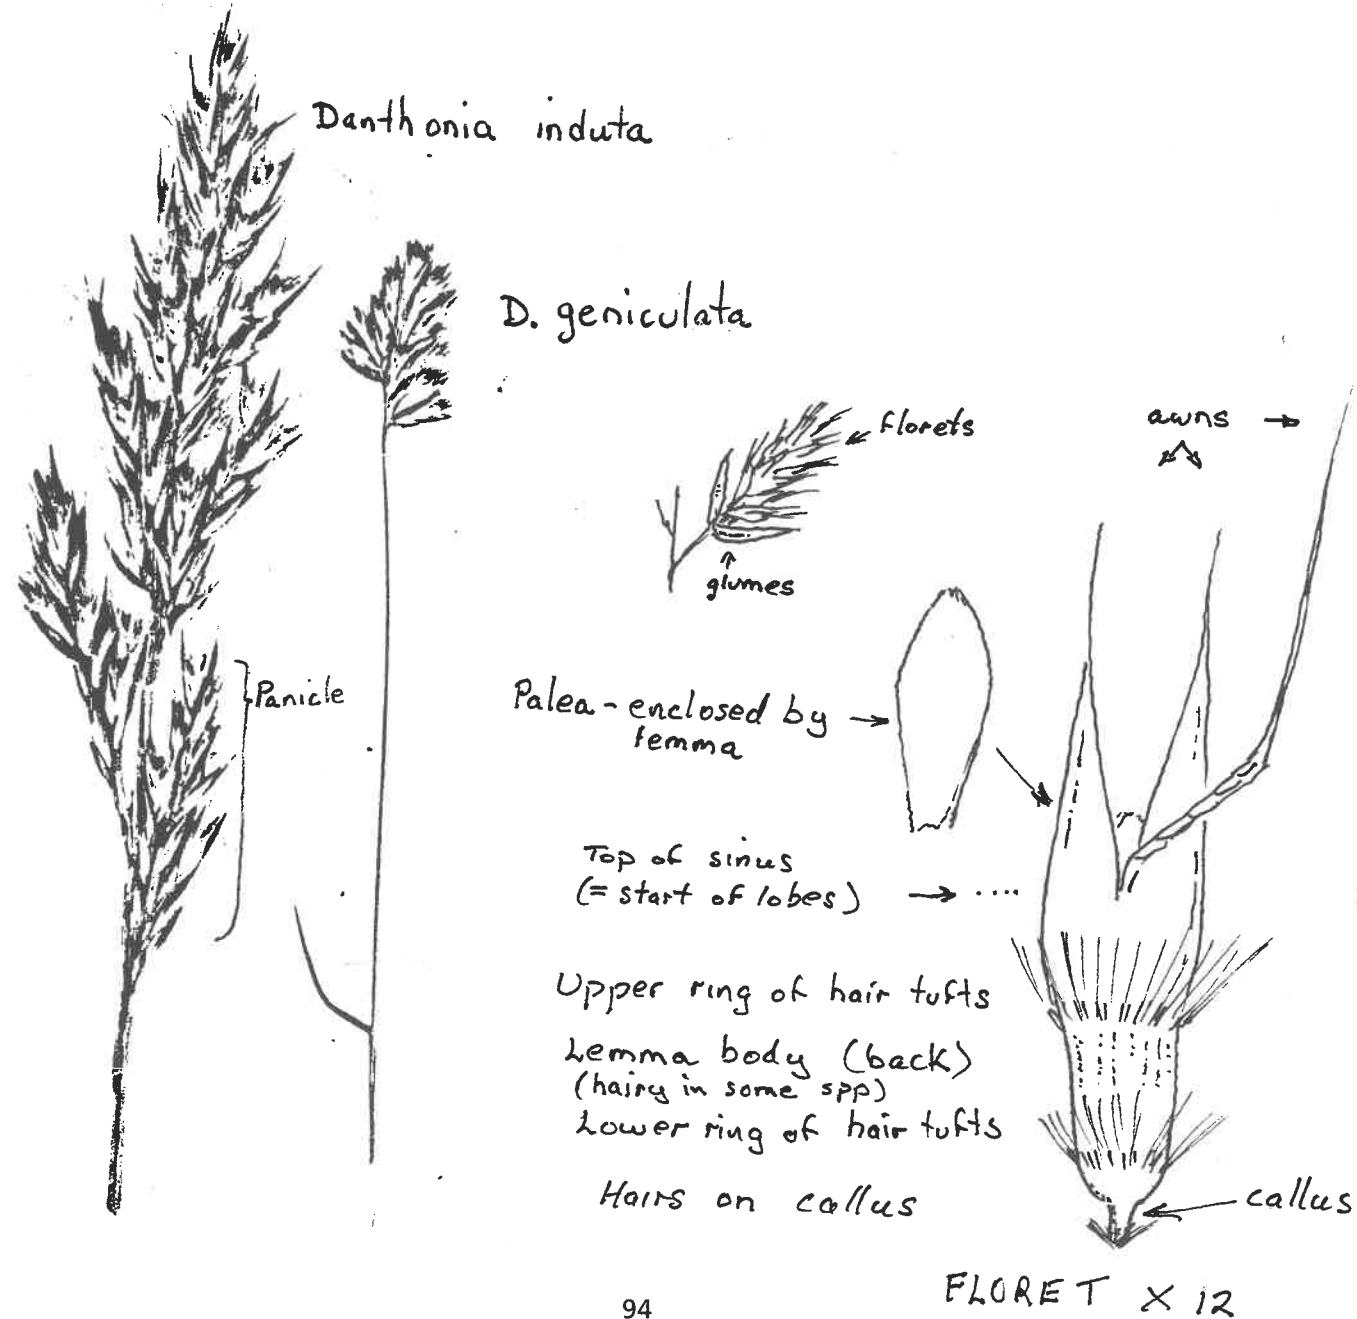 Danthonia induta
D. geniculata
florets
awns
glumes
Panicle
Palea - enclosed by
lemma
Top of sinus
(= start of lobes)
Upper ring of hair tufts
Lemma body (back)
(hairy in some spp)
Lower ring of hair tufts
Hairs on callus
callus
FLORET X 12
94